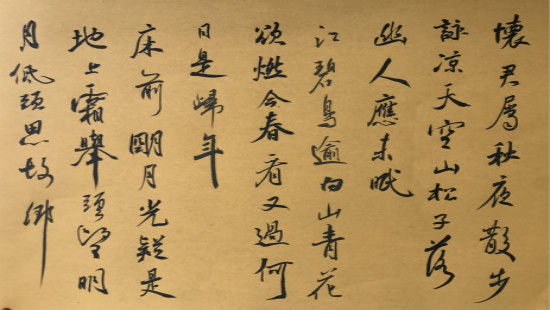 懷君屬秋夜散步
詠涼天空山松子落
幽人應未眠
江碧鳥逾白山青花
欲燃今春看又過何
日是歸年
床前明月光疑是
地上霜舉頭望明
月低頭思故鄉